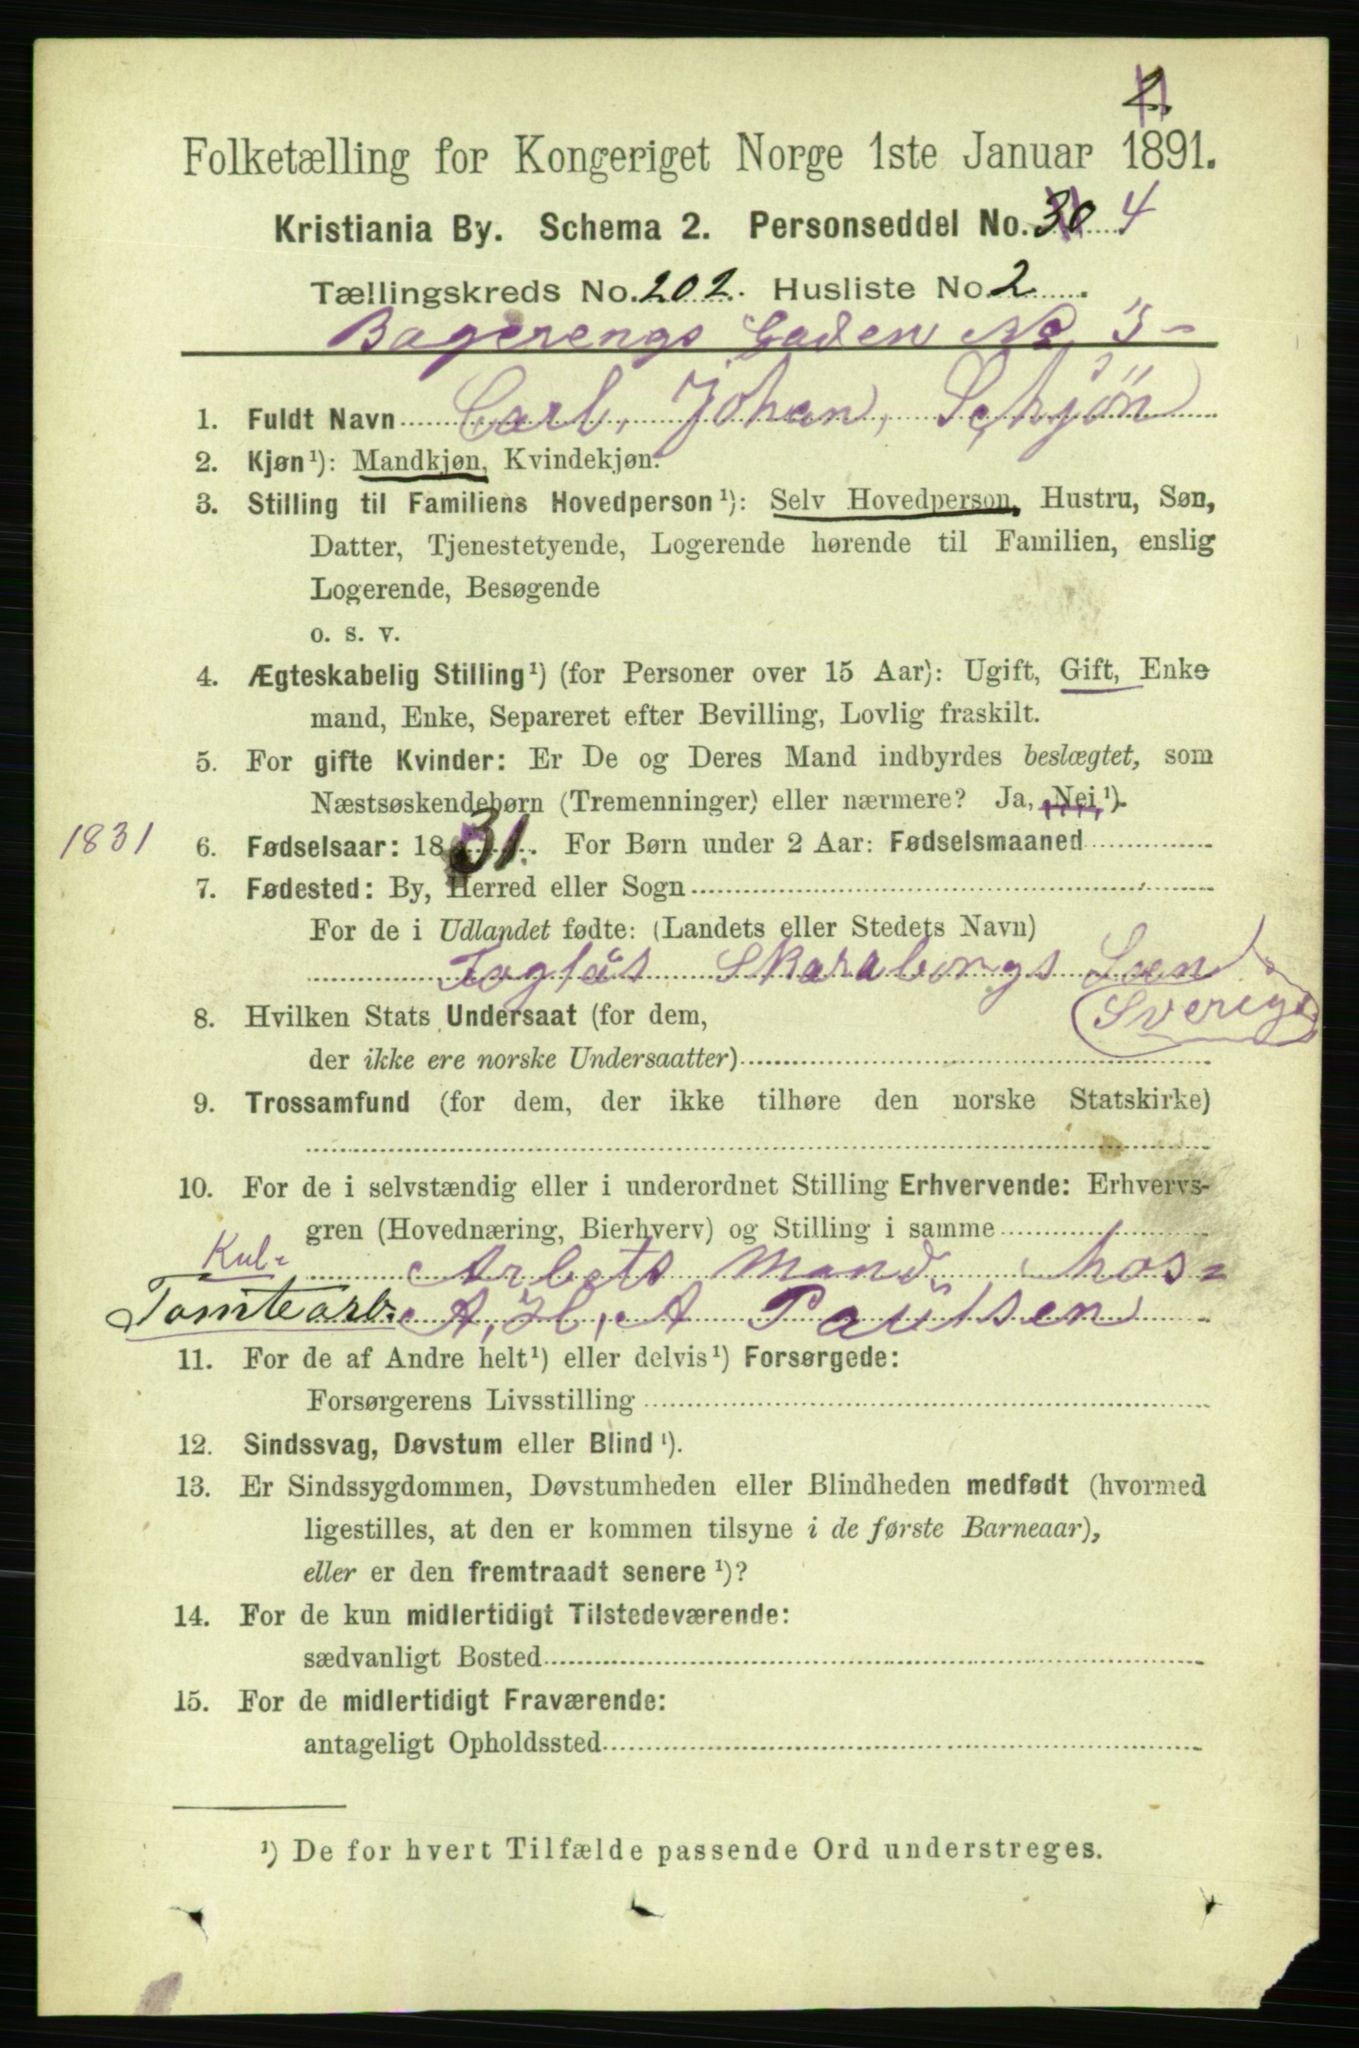 2
Folketælling for Kongeriget Norge 1ste Januar 1891.
Kristiania By. Schema 2. Personseddel No. 30 4
Tællingskreds No. 202. Husliste No. 2
Bagerengs Gaden No 3
1. Fuldt Navn Carl, Johan, Schjön
2. Kjøn¹): Mandkjøn, Kvindekjøn.
3. Stilling til Familiens Hovedperson¹): Selv Hovedperson, Hustru, Søn,
Datter, Tjenestetyende, Logerende hørende til Familien, enslig
Logerende, Besøgende
o. s. v.
4. Ægteskabelig Stilling¹) (for Personer over 15 Aar): Ugift, Gift, Enke
mand, Enke, Separeret efter Bevilling, Lovlig fraskilt.
5. For gifte Kvinder: Er De og Deres Mand indbyrdes beslægtet, som
Næstsøskendebørn (Tremenninger) eller nærmere? Ja, Nei¹).
1831 6. Fødselsaar: 1831. For Børn under 2 Aar: Fødselsmaaned
7. Fødested: By, Herred eller Sogn
For de i Udlandet fødte: (Landets eller Stedets Navn)
Foglås Skaraborgs Laen
Sverige
8. Hvilken Stats Undersaat (for dem,
der ikke ere norske Undersaatter)
9. Trossamfund (for dem, der ikke tilhøre den norske Statskirke)
10. For de i selvstændig eller i underordnet Stilling Erhvervende: Erhvervs-
gren (Hovednæring, Bierhverv) og Stilling i samme
Kul- Arbets Mand hos
Tomtearb. A, H, A Paulsen
11. For de af Andre helt¹) eller delvis¹) Forsørgede:
Forsørgerens Livsstilling
12. Sindssvag, Døvstum eller Blind¹).
13. Er Sindssygdommen, Døvstumheden eller Blindheden medfødt (hvormed
ligestilles, at den er kommen tilsyne i de første Barneaar),
eller er den fremtraadt senere¹)?
14. For de kun midlertidigt Tilstedeværende:
sædvanligt Bosted
15. For de midlertidigt Fraværende:
antageligt Opholdssted
¹) De for hvert Tilfælde passende Ord understreges.